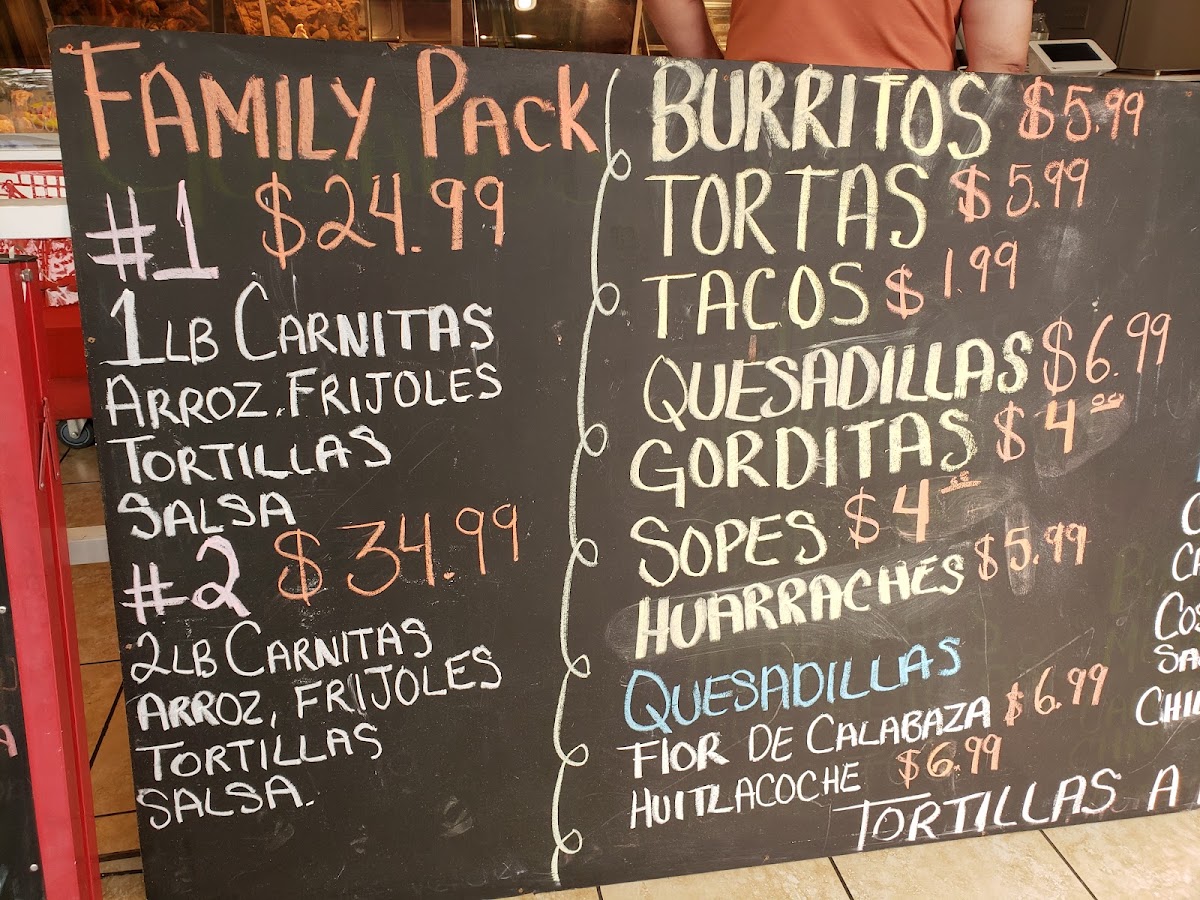 FAMILY PACK
#1 $24.99
1LB CARNITAS
ARROZ, FRIJOLES
TORTILLAS
SALSA
#2 $34.99
2LB CARNITAS
ARROZ, FRIJOLES
TORTILLAS
SALSA.
BURRITOS $5.99
TORTAS $5.99
TACOS $1.99
QUESADILLAS $6.99
GORDITAS $4.00
SOPES $4.00
HUARRACHES $5.99
QUESADILLAS
FLOR DE CALABAZA $6.99
HUITLACOCHE $6.99
TORTILLAS A